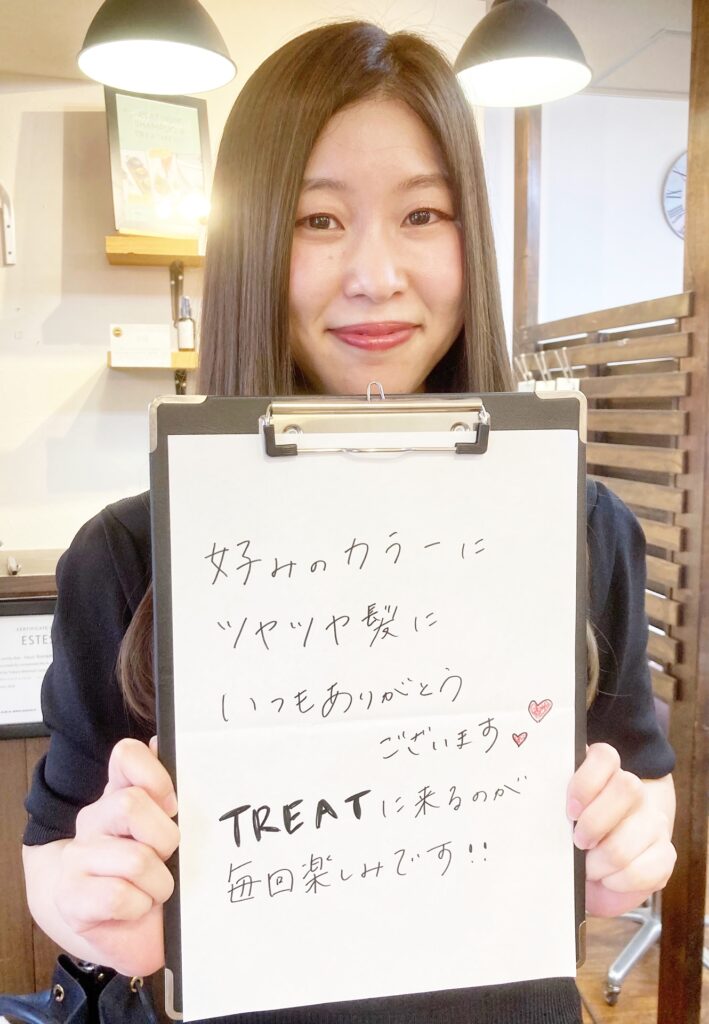 好みのカラーに
ツヤツヤ髪に
いつもありがとう
ございます
TREATに来るのが
毎回楽しみです!!
ESTES